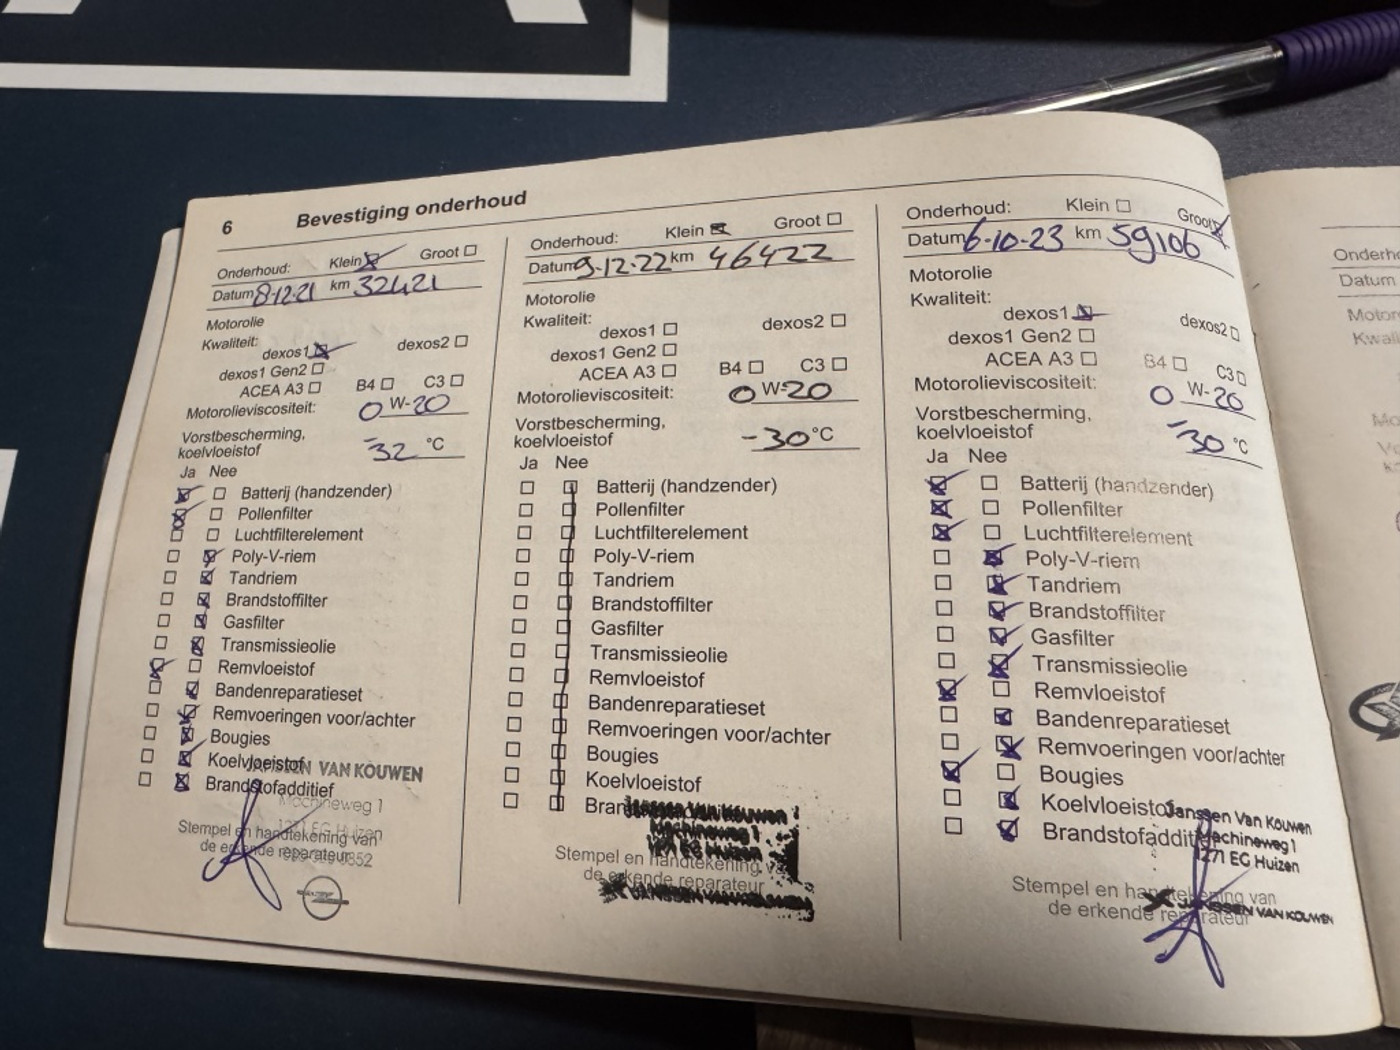 6 Bevestiging onderhoud
Onderhoud: Klein Groot
Datum 8-12-21 km 32421
Motorolie
Kwaliteit:
dexos1 dexos2
dexos1 Gen2
ACEA A3 B4 C3
Motorolieviscositeit: 0 W-20
Vorstbescherming,
koelvloeistof -32 °C
Ja Nee
Batterij (handzender)
Pollenfilter
Luchtfilterelement
Poly-V-riem
Tandriem
Brandstoffilter
Gasfilter
Transmissieolie
Remvloeistof
Bandenreparatieset
Remvoeringen voor/achter
Bougies
Koelvloeistof
JANSSEN VAN KOUWEN
Brandstofadditief
Machineweg 1
1271 EG Huizen
Stempel en handtekening van
de erkende reparateur
Onderhoud: Klein Groot
Datum 9-12-22 km 46422
Motorolie
Kwaliteit:
dexos1 dexos2
dexos1 Gen2
ACEA A3 B4 C3
Motorolieviscositeit: 0 W-20
Vorstbescherming,
koelvloeistof -30 °C
Ja Nee
Batterij (handzender)
Pollenfilter
Luchtfilterelement
Poly-V-riem
Tandriem
Brandstoffilter
Gasfilter
Transmissieolie
Remvloeistof
Bandenreparatieset
Remvoeringen voor/achter
Bougies
Koelvloeistof
Janssen Van Kouwen
Machineweg 1
1271 EG Huizen
Stempel en handtekening
de erkende reparateur
JANSSEN VAN KOUWEN
Onderhoud: Klein Groot
Datum 6-10-23 km 59106
Motorolie
Kwaliteit:
dexos1 dexos2
dexos1 Gen2
ACEA A3 B4 C3
Motorolieviscositeit: 0 W-20
Vorstbescherming,
koelvloeistof -30 °C
Ja Nee
Batterij (handzender)
Pollenfilter
Luchtfilterelement
Poly-V-riem
Tandriem
Brandstoffilter
Gasfilter
Transmissieolie
Remvloeistof
Bandenreparatieset
Remvoeringen voor/achter
Bougies
Koelvloeistof
Janssen Van Kouwen
Brandstofadditief
Machineweg 1
1271 EG Huizen
Stempel en handtekening van
de erkende reparateur
JANSSEN VAN KOUWEN
Datum